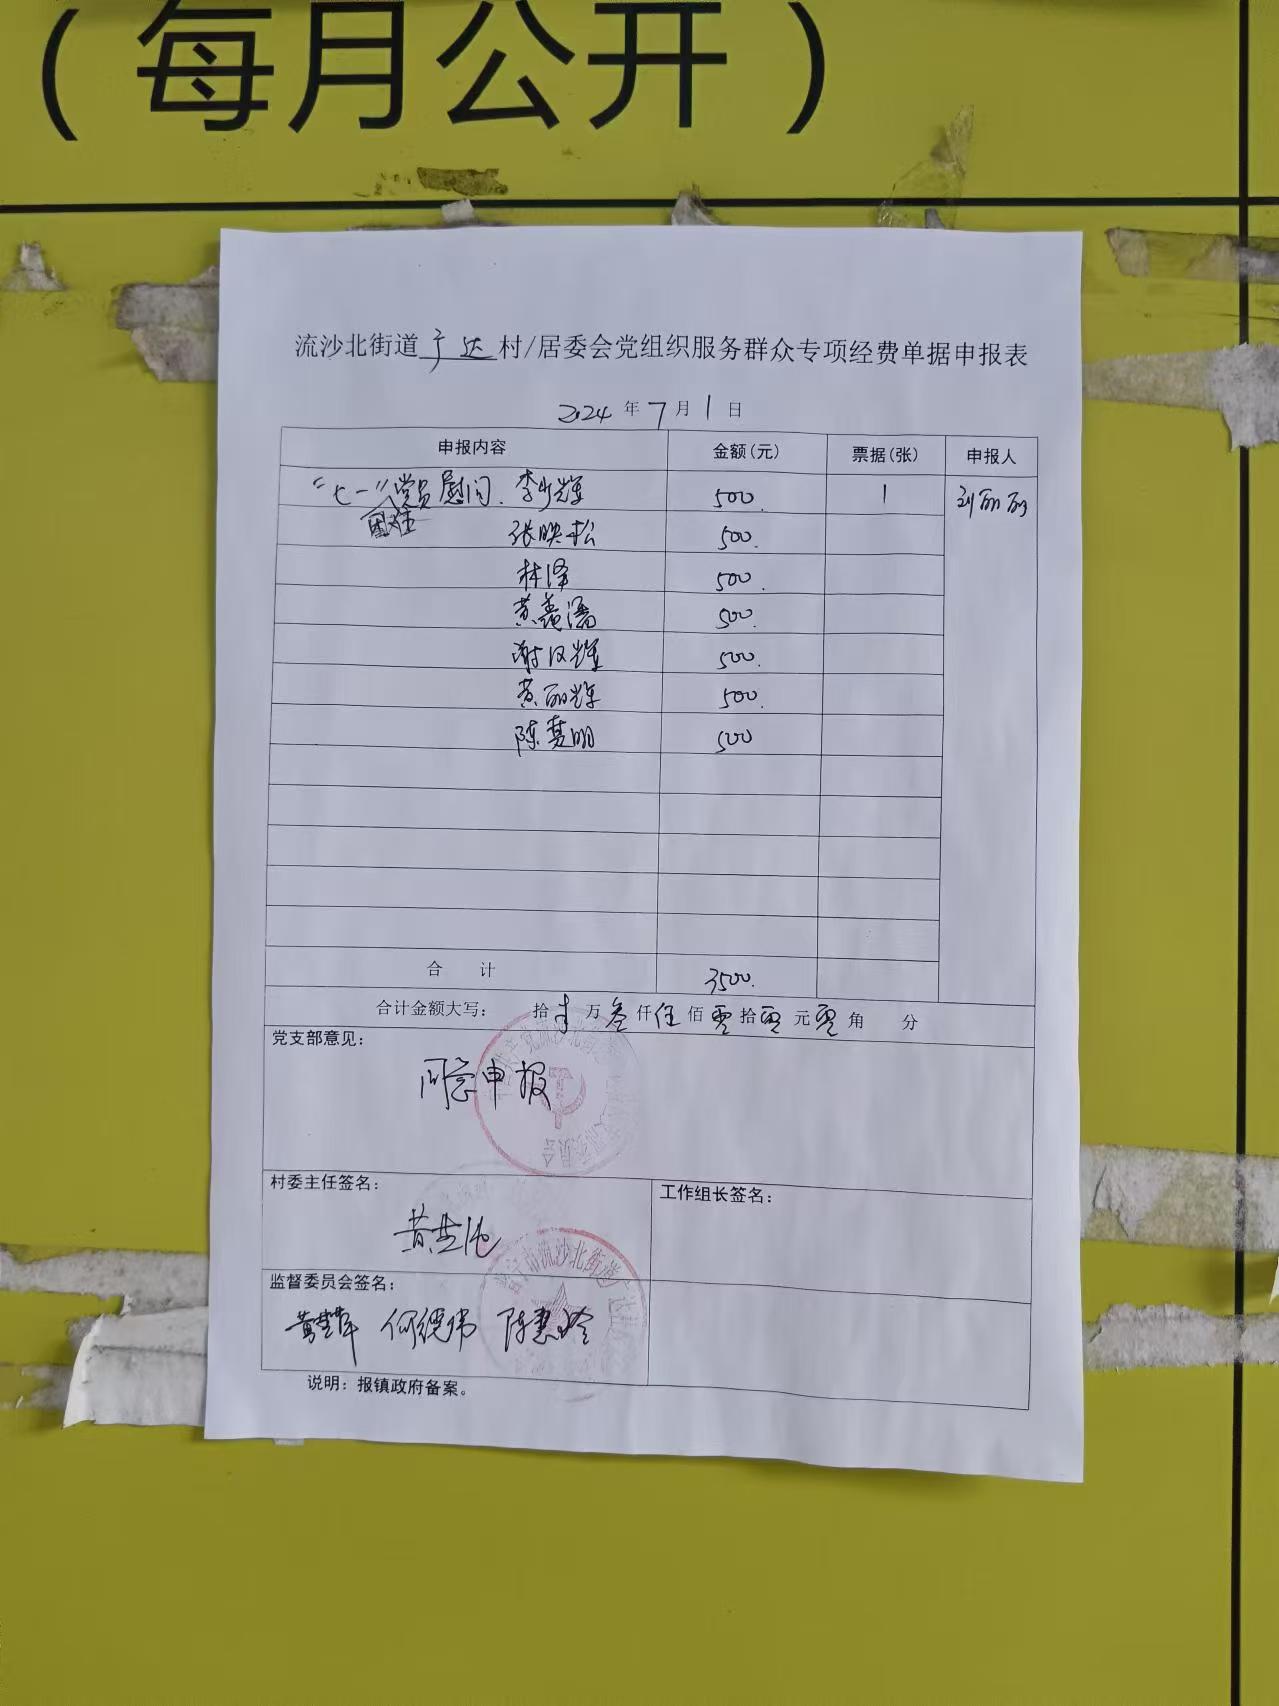 （每月公开）
流沙北街道广达村/居委会党组织服务群众专项经费单据申报表
2024年7月1日
申报内容 金额(元) 票据(张) 申报人
“七一”困难党员慰问、李少辉 500. 1 刘丽丽
张映松 500.
林泽 500.
黄 500.
谢汉辉 500.
黄丽辉 500.
陈楚明 500
合计 3500.
合计金额大写： 拾 万叁仟伍佰零拾零元零角 分
党支部意见：
同意申报
村委主任签名： 工作组长签名：
黄
监督委员会签名：
黄 何德伟 陈惠玲
说明：报镇政府备案。